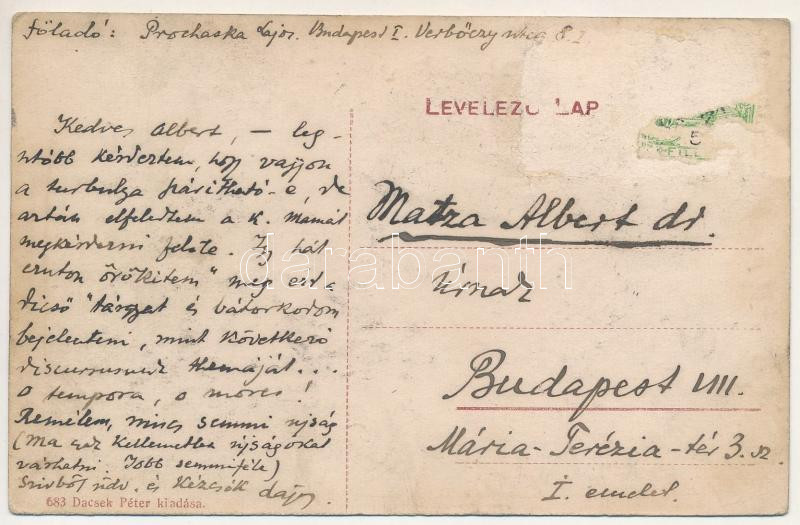 Föladó: Prochaska Lajos. Budapest I. Verbőczy utca 8. I
LEVELEZŐ LAP
5
FILL
Kedves Albert, — leg-
utóbb kérdeztem, hogy vajjon
a turbulya párítható-e, de
aztán elfeledtem a k. mamát
megkérdezni felőle. Így hát
ezuton "örökitem" meg ezt a
dicső "tárgyat és bátorkodom
bejelenteni, mint következő
discursusunk themáját...
o tempora, o mores!
Remélem, nincs semmi ujság
(Ma csak kellemetlen ujságokat
várhatni. Jobb semmiféle)
Szivből üdv. és Kézcsók Lajos
Matza Albert dr.
Urnak
Budapest VIII.
Mária-Terézia-tér 3. sz
I. emelet.
683 Dacsek Péter kiadása.
darabanth.com